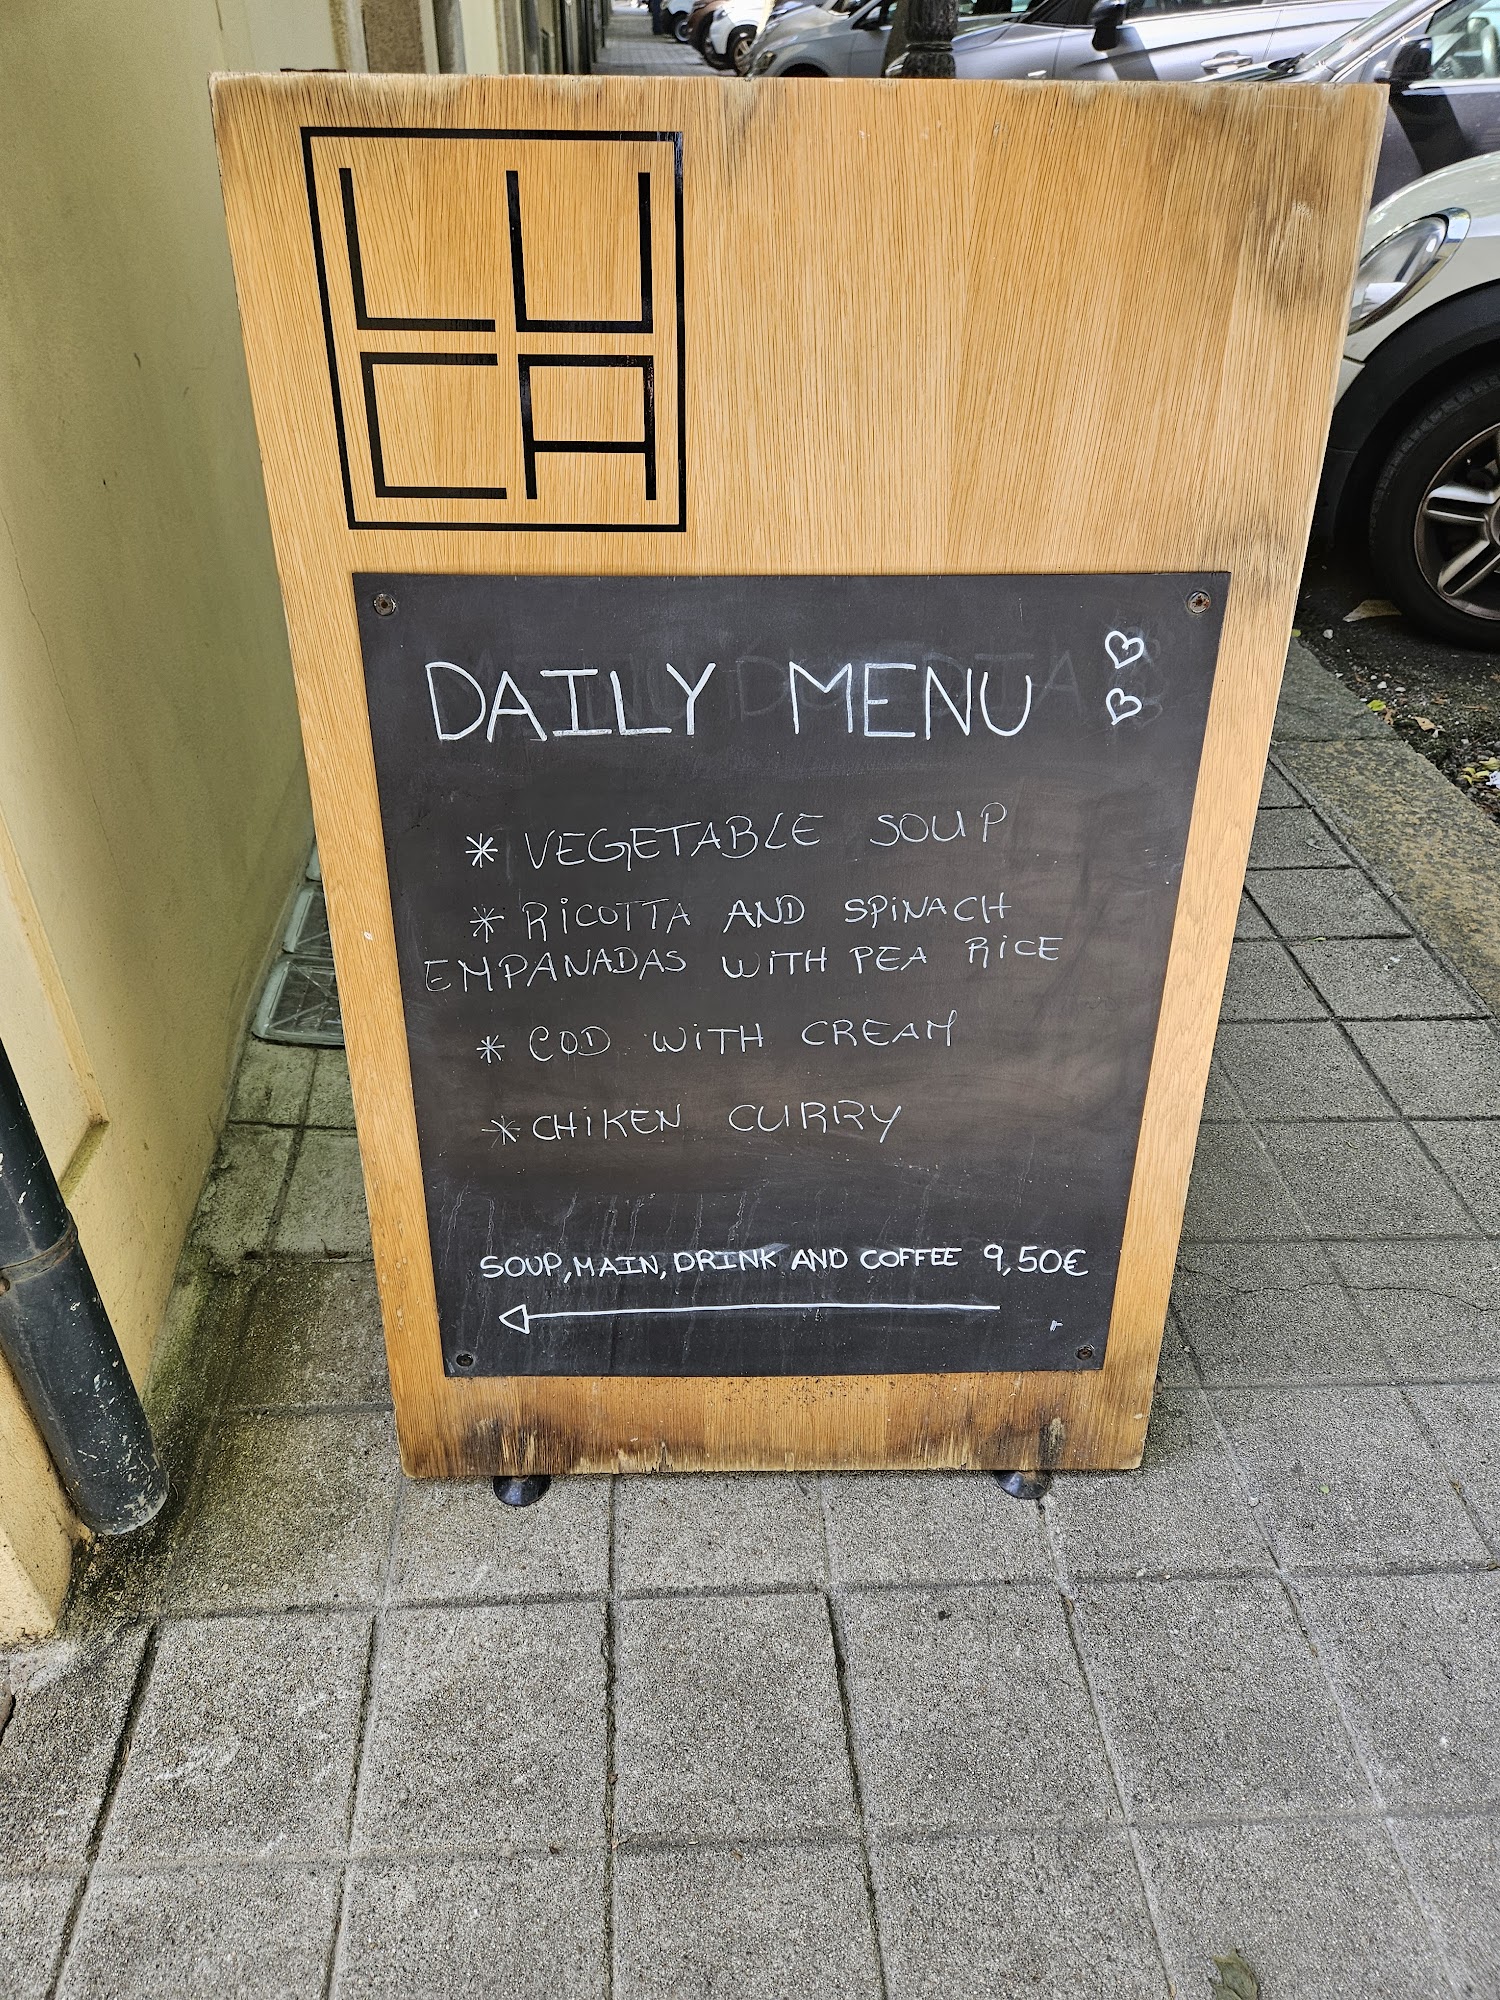 LU
CA
DAILY MENU
* VEGETABLE SOUP
* RICOTTA AND SPINACH
EMPANADAS WITH PEA RICE
* COD WITH CREAM
* CHIKEN CURRY
SOUP, MAIN, DRINK AND COFFEE 9,50€